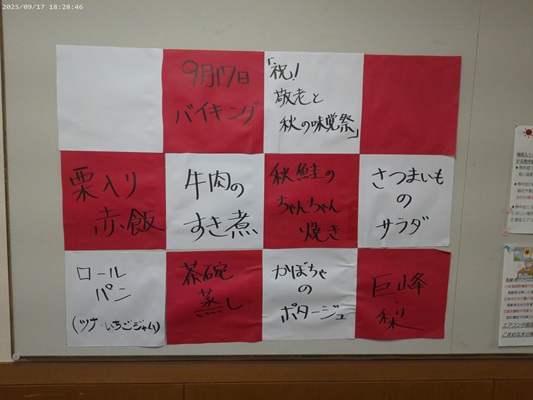 2025/09/17 18:28:46
9月17日
バイキング
「祝!
敬老と
秋の味覚祭」
栗入り
赤飯
牛肉の
すき煮
秋鮭の
ちゃんちゃん
焼き
さつまいも
の
サラダ
ロール
パン
(ツナ・いちごジャム)
茶碗
蒸し
かぼちゃ
の
ポタージュ
巨峰
・
梨